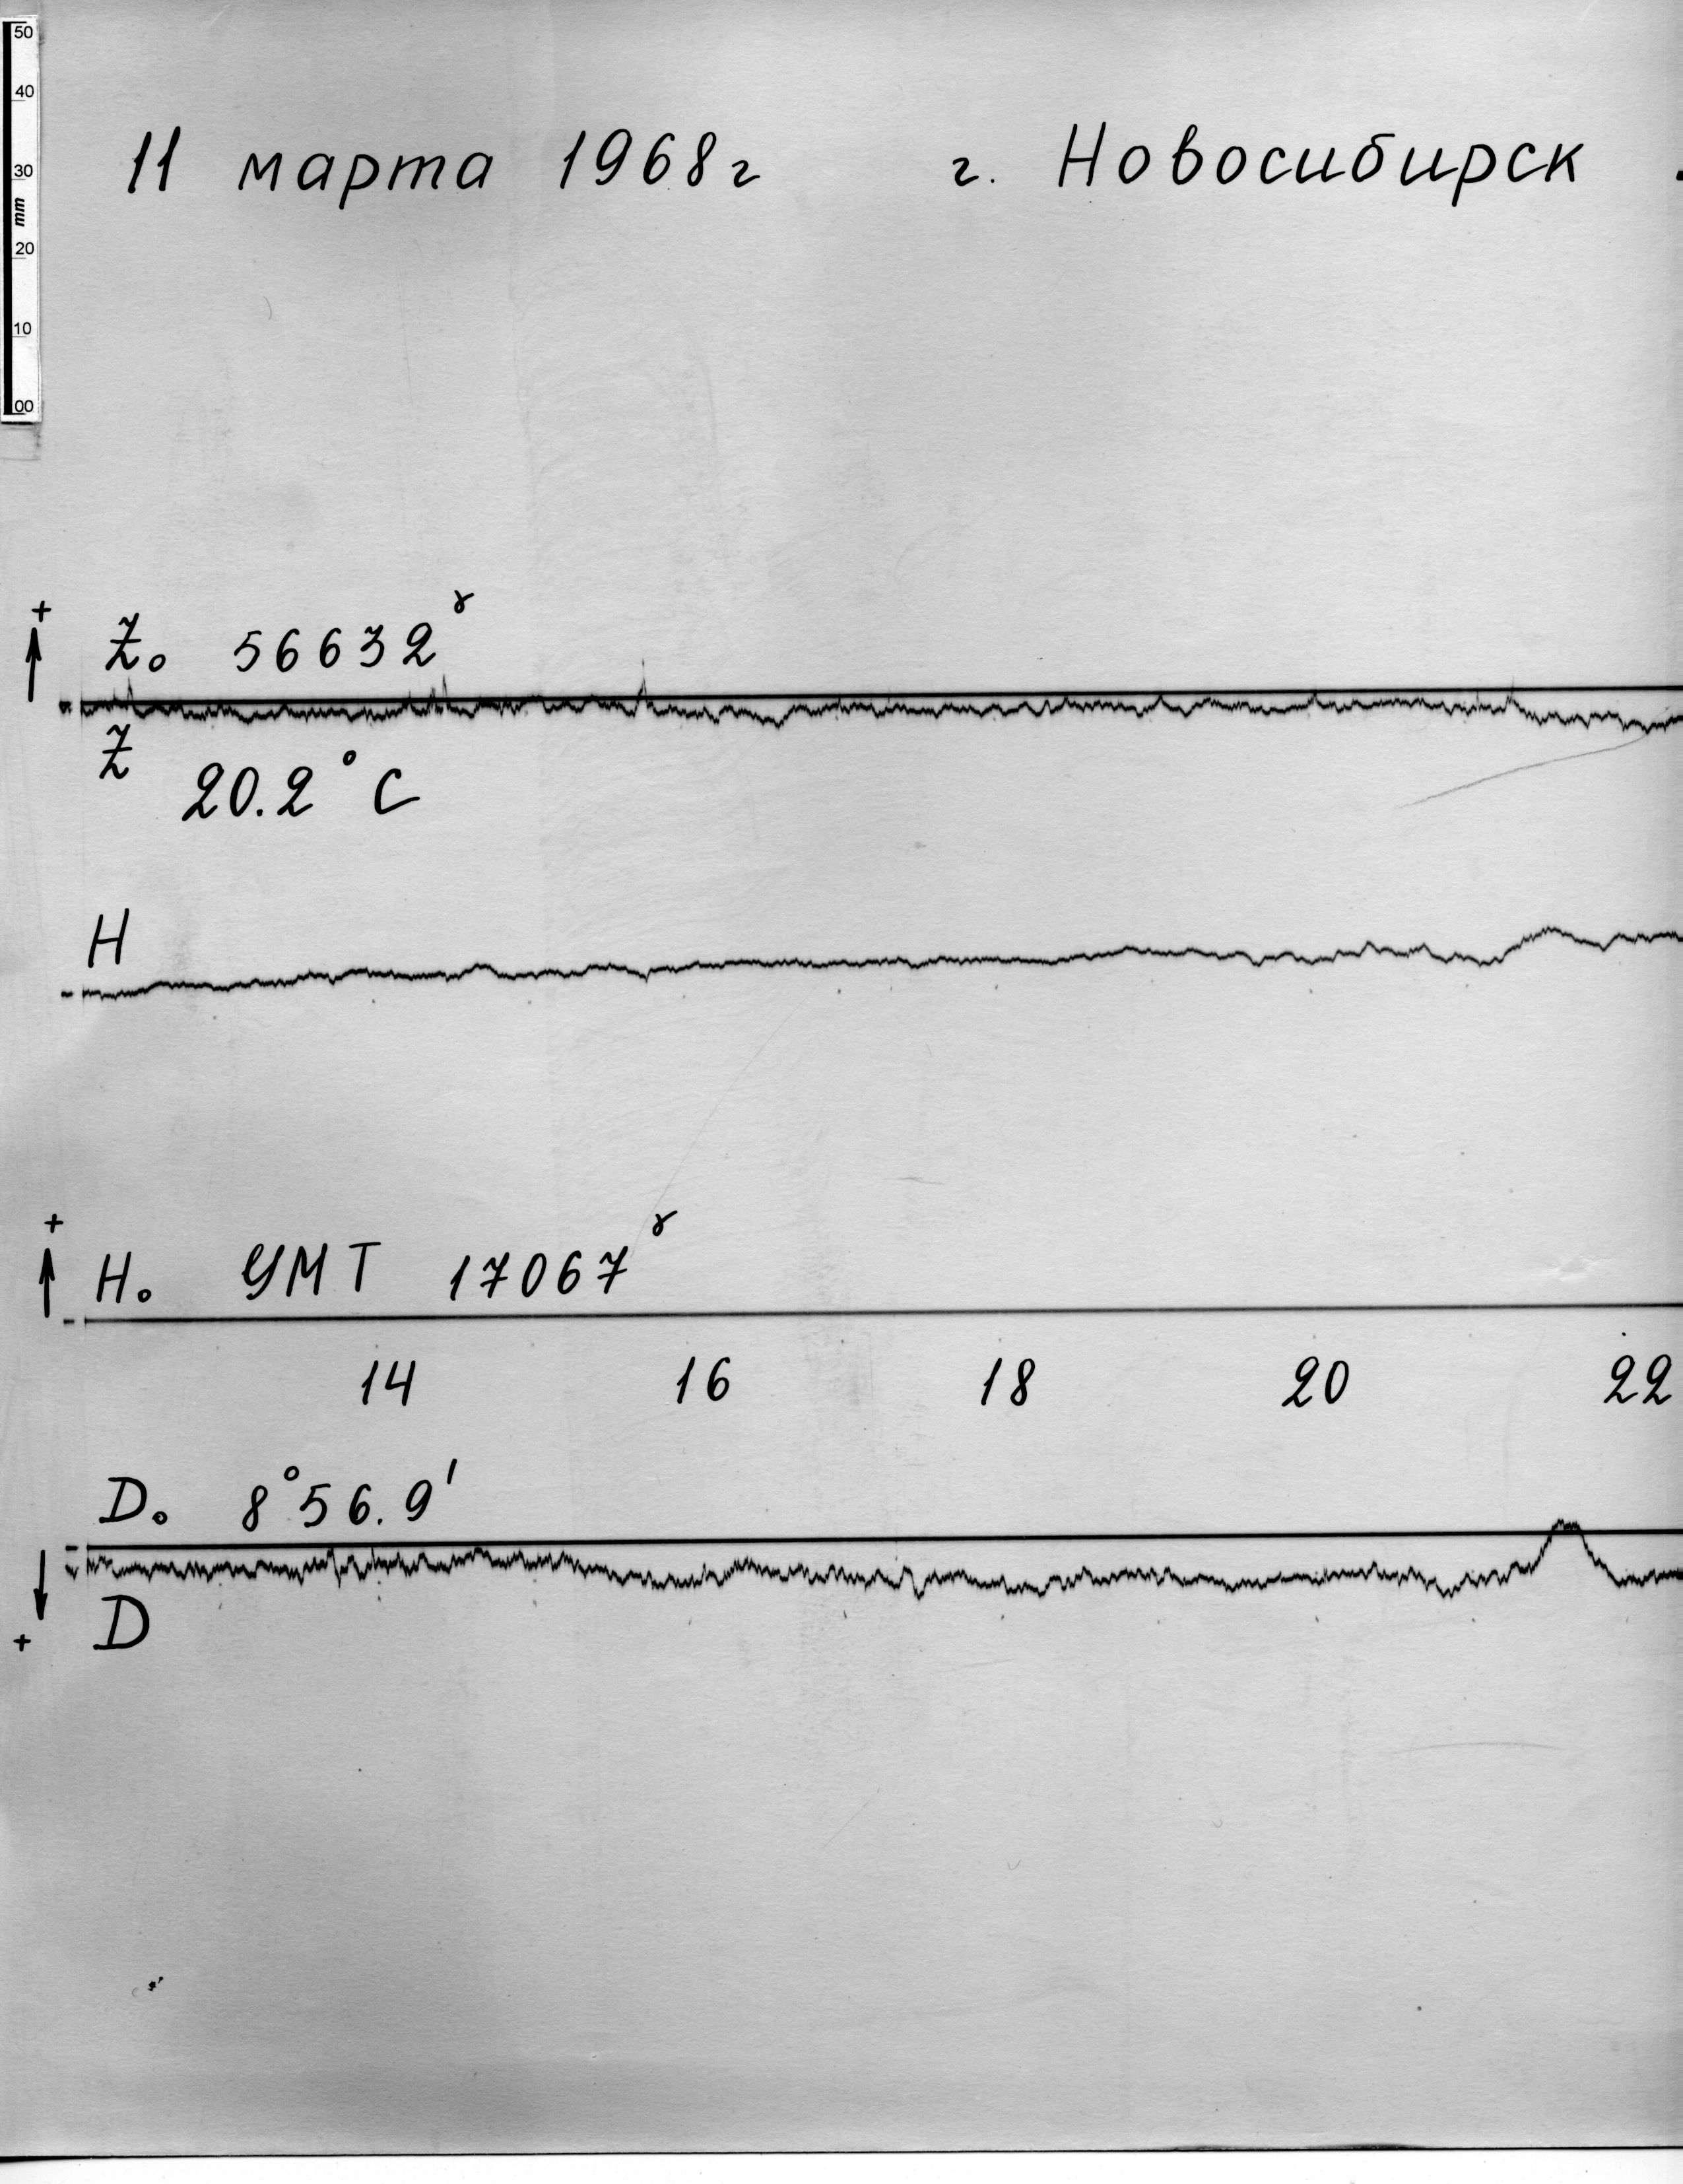 50
40
30
mm
20
10
00
11 марта 1968г г. Новосибирск
+
Z₀ 56632ˠ
Z
20.2°C
H
+
H₀ УМТ 17067ˠ
14 16 18 20 22
D₀ 8°56.9'
D
+